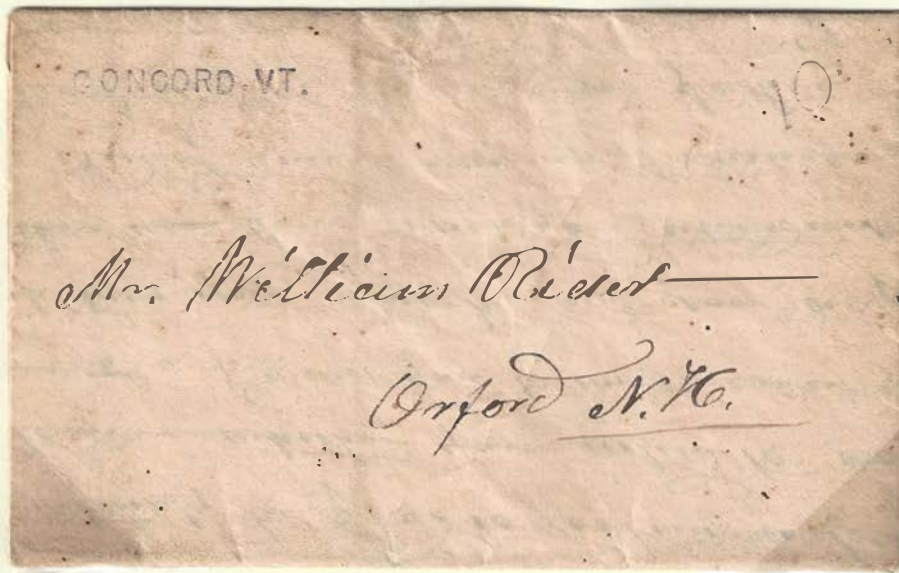 CONCORD. VT.
10
Mr. William Rider
Orford N.H.